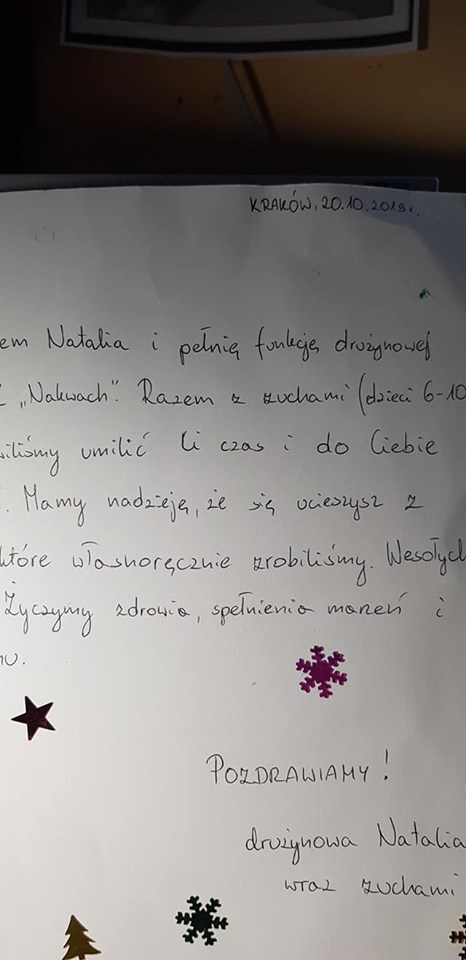 KRAKÓW, 20.10.2019r.
em Natalia i pełnię funkcję drużynowej
„Nakwach". Razem z zuchami (dzieci 6-10
iliśmy umilić Ci czas i do Ciebie
. Mamy nadzieję, że się ucieszysz z
które własnoręcznie zrobiliśmy. Wesołych
Życzymy zdrowia, spełnienia marzeń i
u.
POZDRAWIAMY!
drużynowa Natalia
wraz zuchami